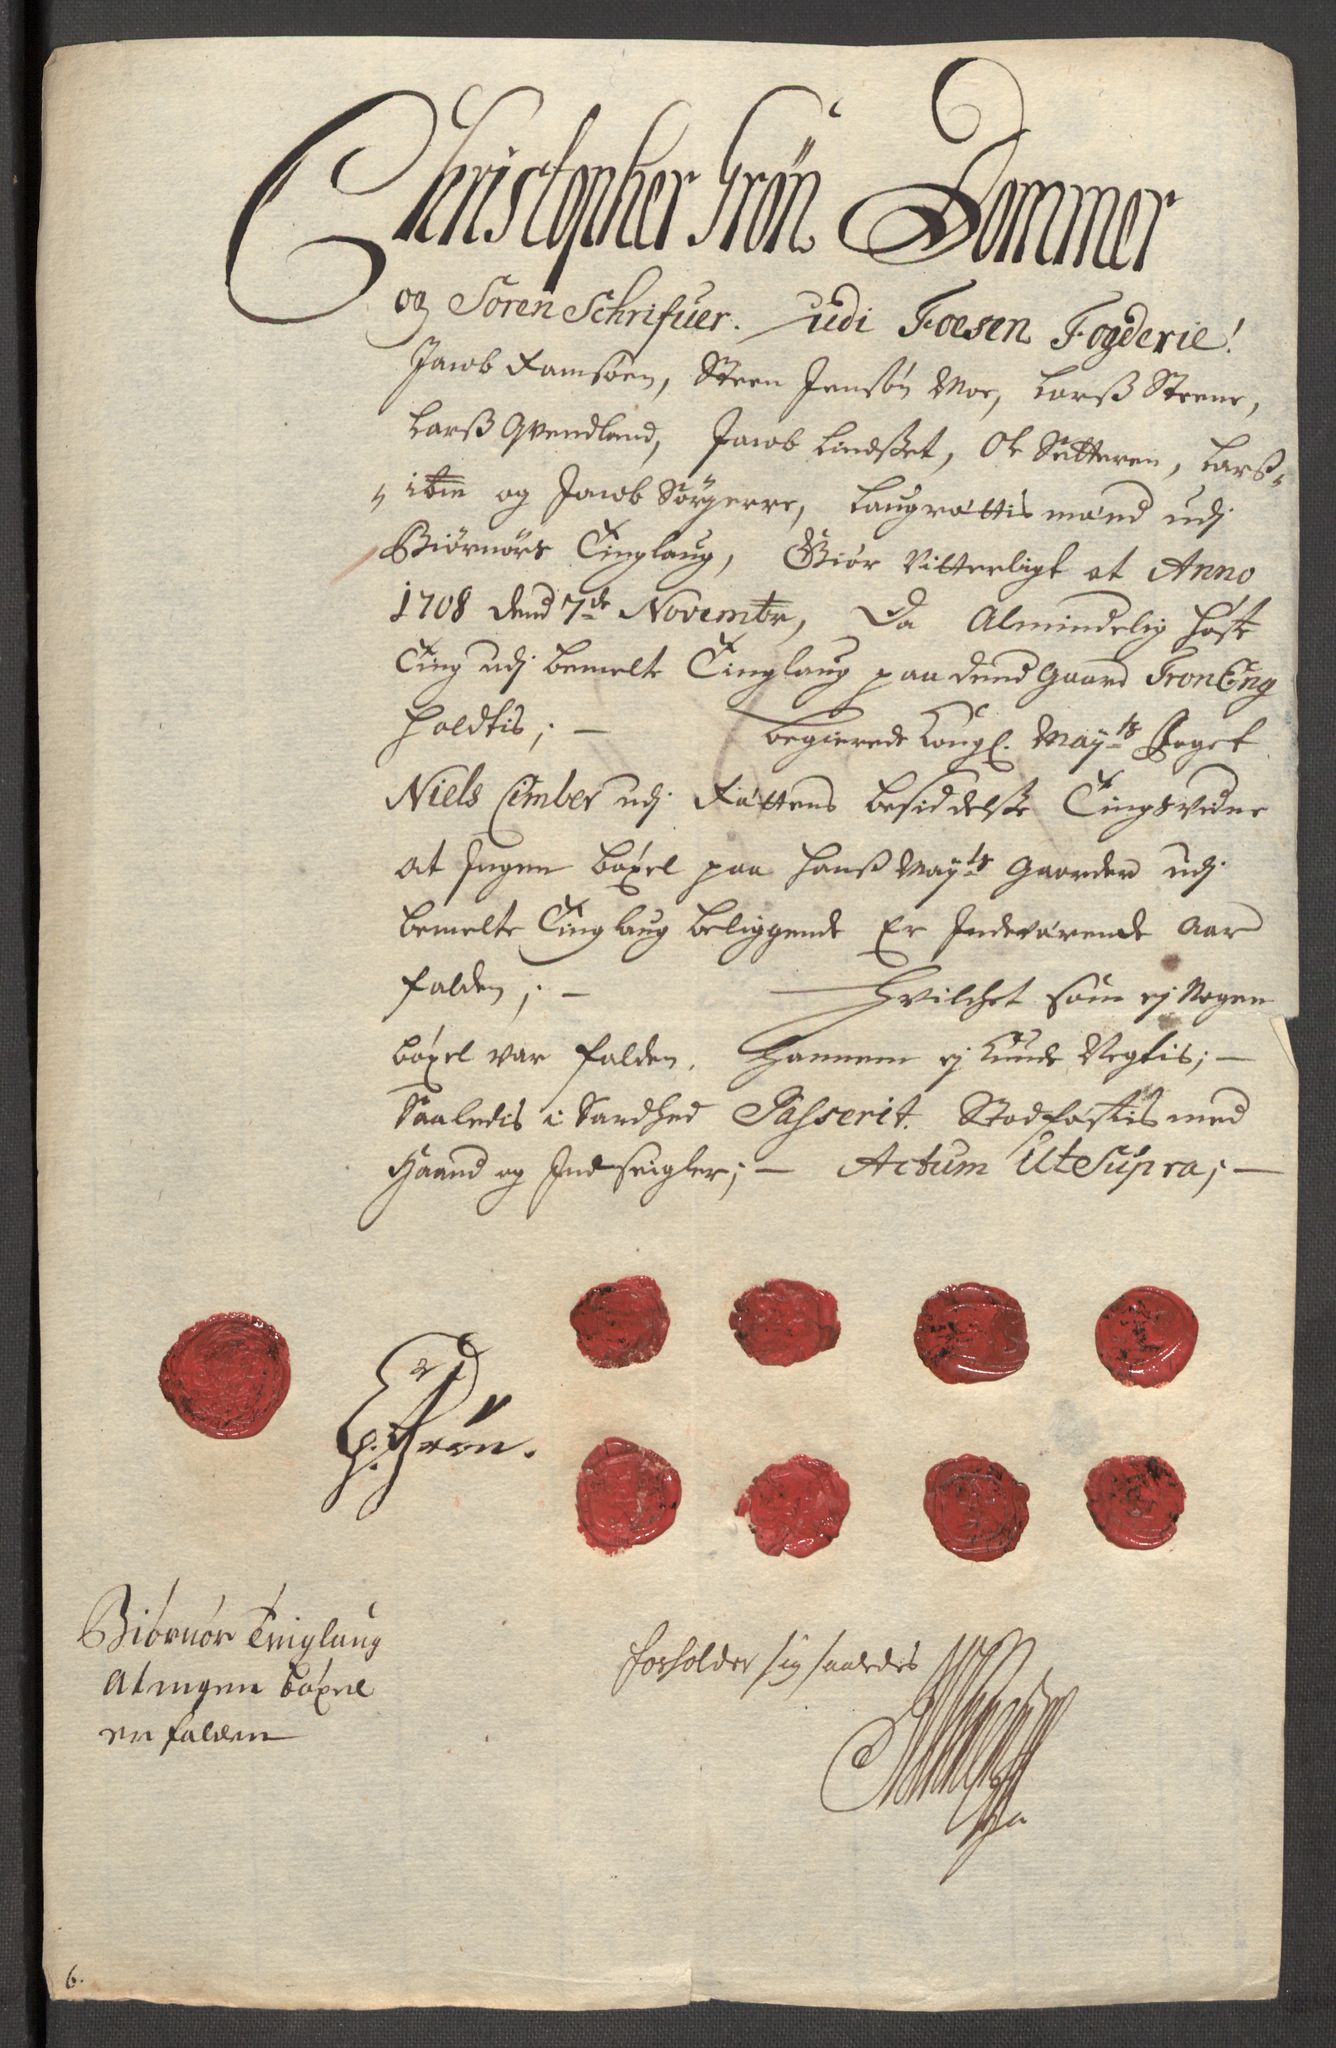 Christopher Grøn Dommer
og Soren Schrifuer. udi Foesen Fogderie!
Jacob Ramsøen, Steen Jensøn Moe, Larß Steene,
Larß Qvendland, Jacob Lindset, Ole Sætteren, Larß
ibm og Jacob Sørgerre, Laugrættis mænd udj
Biørnørs Tinglaug, Giør Vitterligt at Anno
1708 dend 7de Novembr, Da Almindelig Høste
Ting udj bemelte Tinglaug paa dend Gaard TronEng
holdtis; — begierede Kongl. Mayts Foget
Niels Cimber udj Rættens besiddelße Tingsvidne
at Ingen böxel paa Hanß Mayts Gaarder udj
bemelte Tinglaug beliggende Er Indeværende Aar
falden; — Hvilchet som ej Nogen
böxel var falden. Hannem ej Kunde Negtis; —
Saaledis i Sandhed Passerit. Stadfæstis med
Haand og Indseigler; — Actum Ut Supra; —
C. Grøn.
Biørnør Tinglaug
At ingen böxel
er falden
forholder sig saaledis
6.